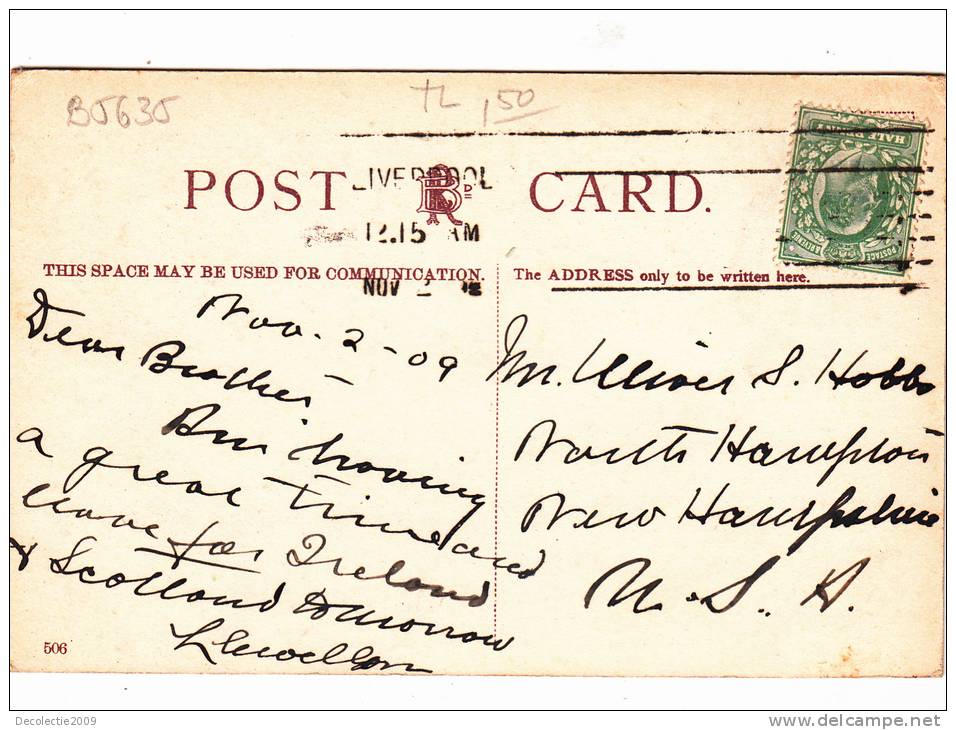 B5635
TL 1,50
HALF PENNY
POSTAGE
REVENUE
LIVERPOOL
POST RD CARD.
12.15 AM
THIS SPACE MAY BE USED FOR COMMUNICATION.
The ADDRESS only to be written here.
NOV 2
Nov. 2-09
Dear Brother
Am having
a great time and
leave for Ireland
& Scotland tomorrow
Llewellyn
506
Mr. Oliver S. Hobbs
North Hampton
New Hampshire
U. S. A.
Decolectie2009
www.delcampe.net